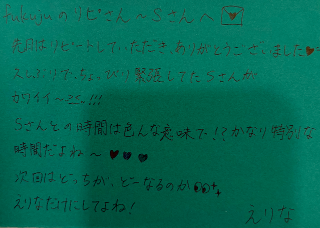 fukujuのリピさん〜Sさんへ 💌
先日はリピートしていただき、ありがとうございました♥
久しぶりでちょっぴり緊張してたSさんが
カワイイ〜ミニ!!!
Sさんとの時間は色んな意味で!?かなり特別な
時間だよね〜♥♥♥
次回はどっちが、どーなるのか
えりなだけにしてよね!
えりな